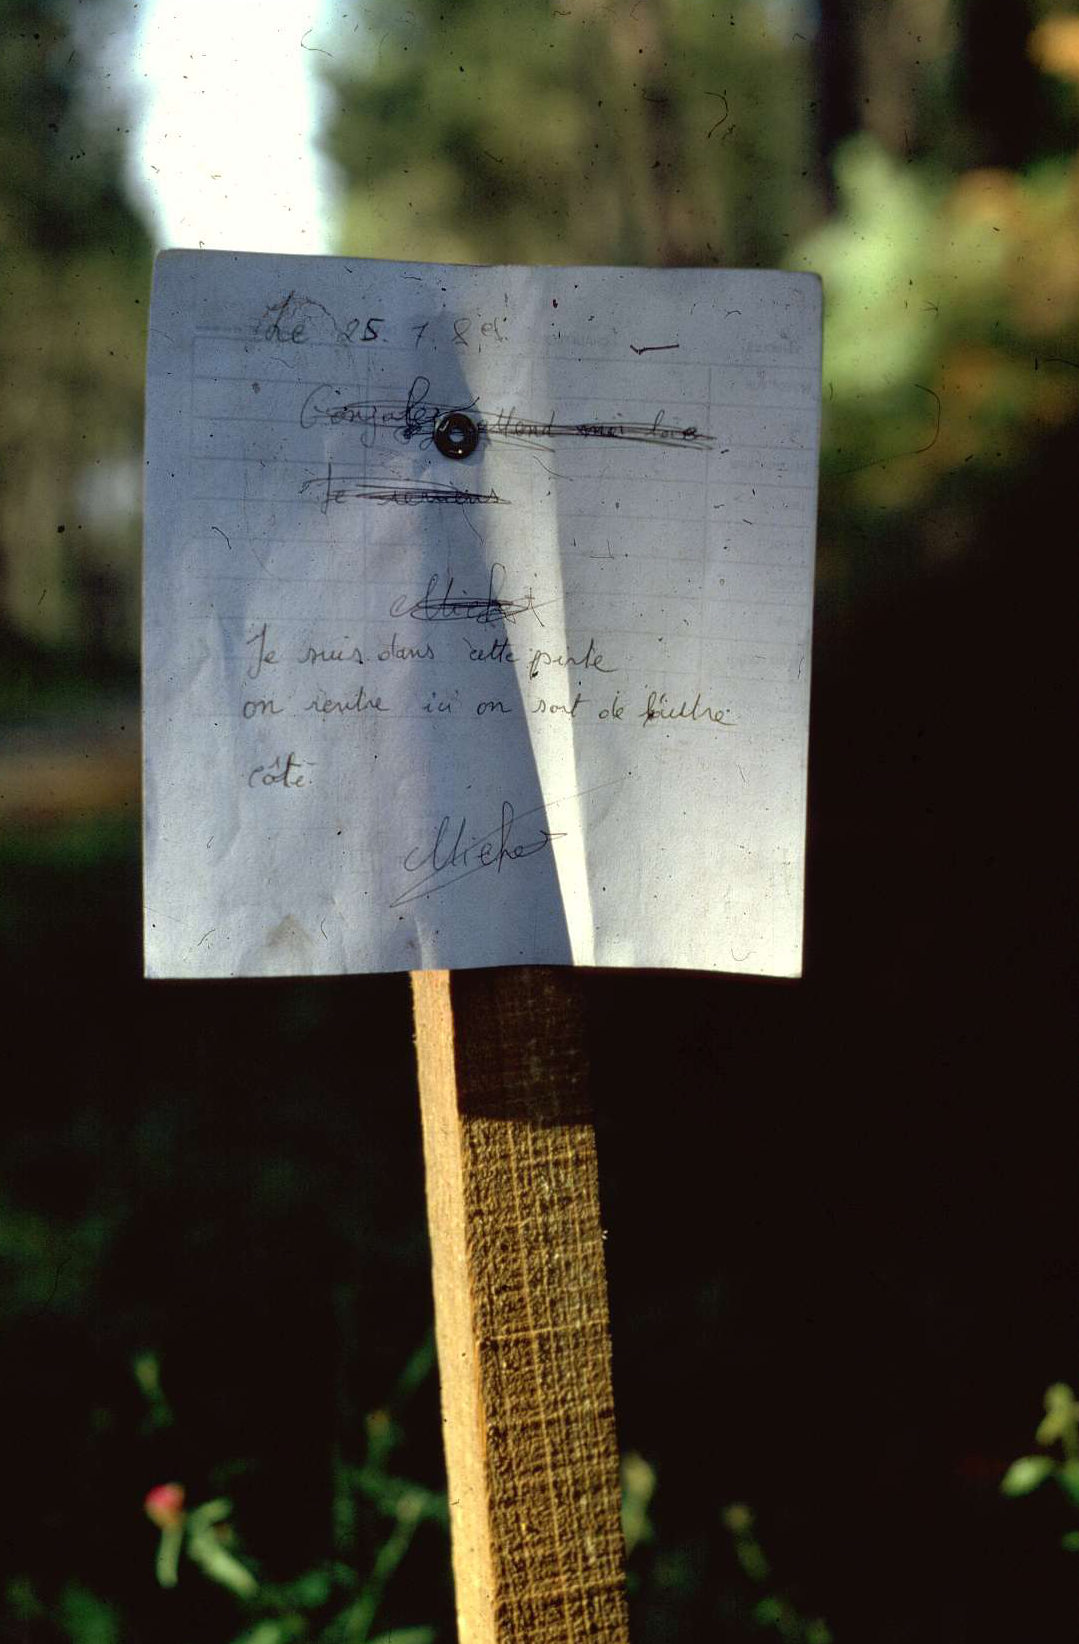 Le 25. 7. 8
Gonzalez attend moi
Je reviens
Michet
Je suis dans cette piste
on rentre ici on sort de l'autre
côté
Michet